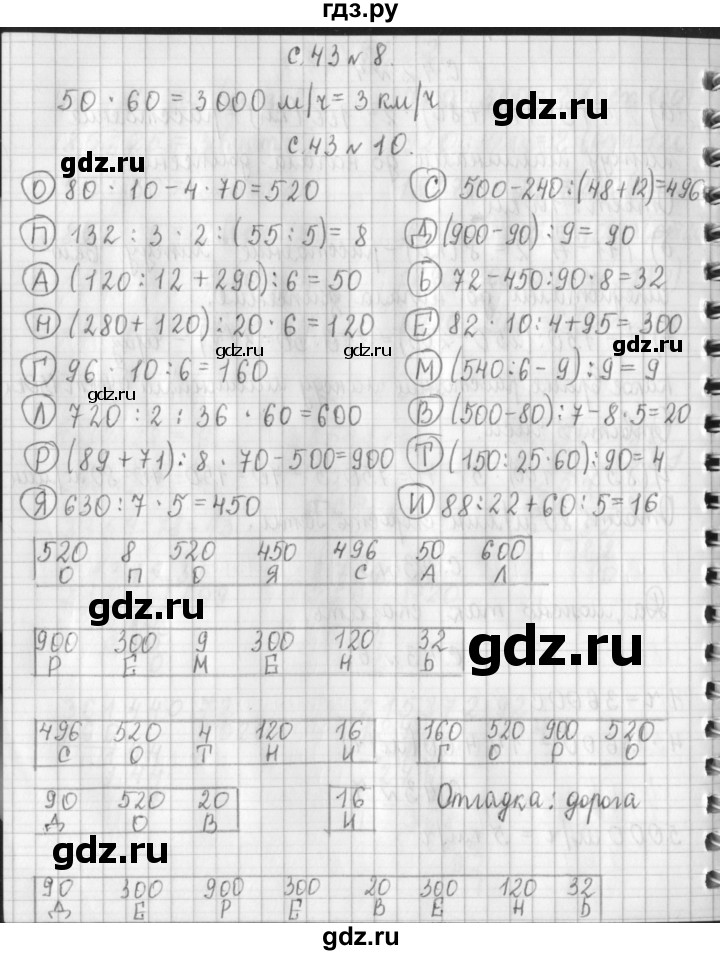 гдз.ру
с.43 № 8.
50 · 60 = 3000 м/ч = 3 км/ч
gdz.ru
с.43 № 10.
gdz.ru
О 80 · 10 - 4 · 70 = 520
С 500 - 240 : (48 + 12) = 496
П 132 : 3 · 2 : (55 : 5) = 8
Д (900 - 90) : 9 = 90
А (120 : 12 + 290) : 6 = 50
Ь 72 - 450 : 90 · 8 = 32
Н (280 + 120) : 20 · 6 = 120
Е 82 · 10 : 4 + 95 = 300
gdz.ru
gdz.ru
Г 96 · 10 : 6 = 160
М (540 : 6 - 9) : 9 = 9
gdz.ru
Л 720 : 2 : 36 · 60 = 600
В (500 - 80) : 7 - 8 · 5 = 20
Р (89 + 71) : 8 · 70 - 500 = 900
Т (150 : 25 · 60) : 90 = 4
Я 630 : 7 · 5 = 450
И 88 : 22 + 60 : 5 = 16
520 8 520 450 496 50 600
О П О Я С А Л
gdz.ru
900 300 9 300 120 32
Р Е М Е Н Ь
gdz.ru
496 520 4 120 16
С О Т Н И
160 520 900 520
Г О Р О
90 520 20
Д О В
16
И
Отгадка: дорога
gdz.ru
90 300 900 300 20 300 120 32
Д Е Р Е В Е Н Ь
gdz.ru